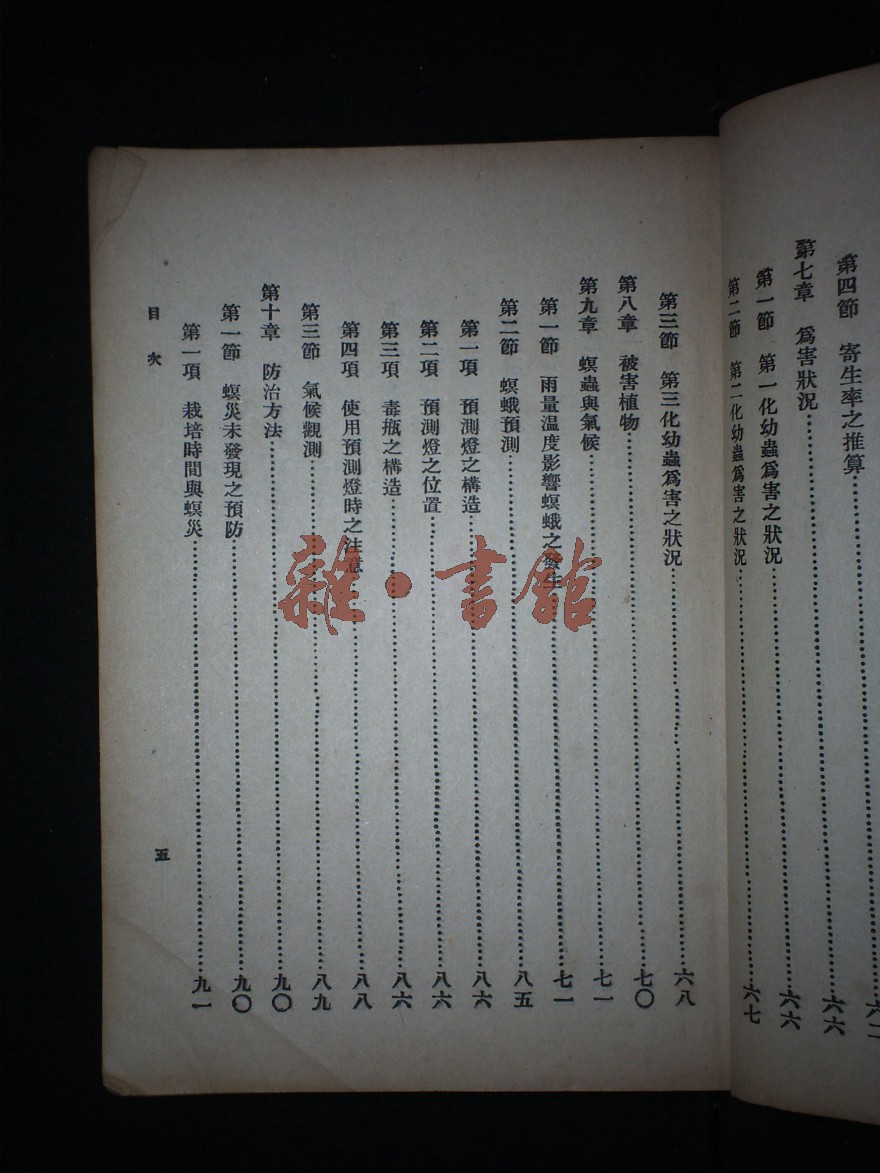 第四節 寄生率之推算……六二
第七章 爲害狀況……六六
第一節 第一化幼蟲爲害之狀況……六六
第二節 第二化幼蟲爲害之狀況……六七
第三節 第三化幼蟲爲害之狀況……六八
第八章 被害植物……七〇
第九章 螟蟲與氣候……七一
第一節 雨量溫度影響螟蛾之發生……七一
第二節 螟蛾預測……八五
第一項 預測燈之構造……八六
第二項 預測燈之位置……八六
第三項 毒瓶之構造……八六
第四項 使用預測燈時之注意……八八
第三節 氣候觀測……八九
第十章 防治方法……九〇
第一節 螟災未發現之預防……九〇
第一項 栽培時間與螟災……九一
目次
五
雜·書館